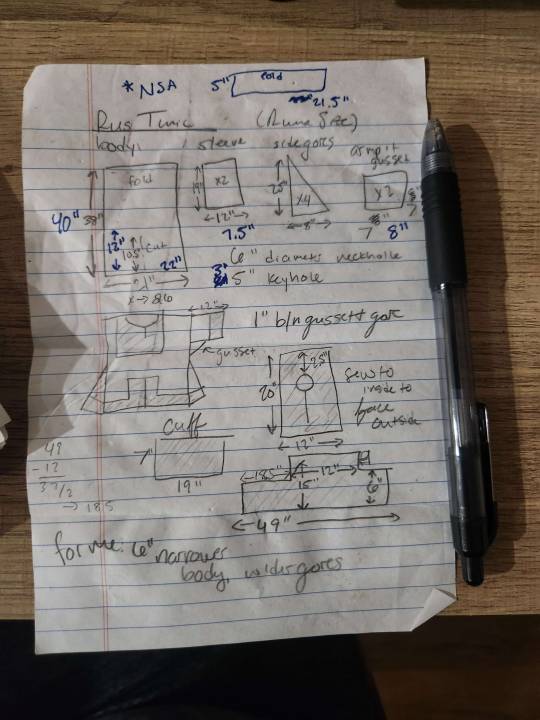 * NSA 5" fold
21.5"
Rus Tunic (Runa Size)
body, sleeve side gores armpit gusset
fold 19" x2 25" x4 x2
40" 38" 12" 8" 7"
7.5" 7 8"
12" 10.5" cut 22"
6" diameter neckhole
3" 5" keyhole
12" 1" b/n gusset + gore
gusset
2.5"
20" sew to
inside to
face
outside
Cuff 12"
7"
19"
49
- 12
37/2
→ 18.5
18.5" 12"
15" 6"
49"
for me: 6" narrower
body, wider gores